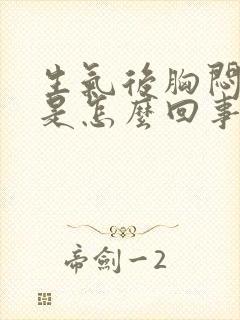 生氣後胸悶
是怎麼回事
帝劍一2